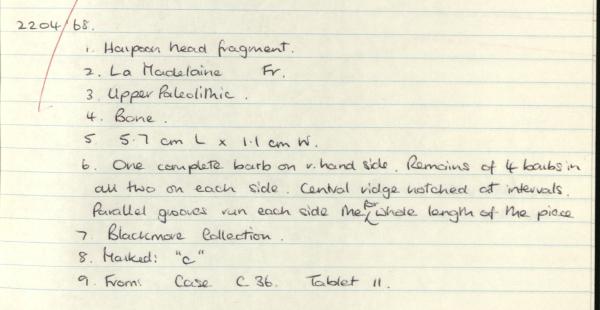 2204/68.
1. Harpoon head fragment.
2. La Madelaine Fr.
3. Upper Paleolithic.
4. Bone.
5. 5.7 cm L x 1.1 cm W.
6. One complete barb on r. hand side. Remains of 4 barbs in
all two on each side. Central ridge notched at intervals.
Parallel grooves run each side the for whole length of the piece
7. Blackmore Collection.
8. Marked: "c"
9. From: Case C 36. Tablet 11.